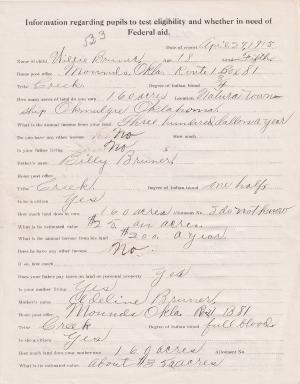 Information regarding pupils to test eligibility and whether in need of
Federal aid.
523
Date of report April 29, 1915
Name of child Willie Bruner Age 18
Home post office Mounds Okla. Route 1 Box 81
Tribe Creek Degree of Indian blood 3/4
How many acres of land do you own? 160 acres Location, Natura town-
ship Okmulgee Oklahoma
What is the annual income from your land? Three hundred dollars a year
Do you have any other income? No How much
Is your father living? No
Father's name Billy Bruner
Home post office
Tribe Creek Degree of Indian blood one half
Is he a citizen? Yes
How much land does he own? 160 acres Allotment No. I do not know
What is its estimated value? $25 an acre
What is the annual income from his land? $200 a year
Does he have any other income? No.
If so, how much
Does your father pay taxes on land or personal property? Yes
Is your mother living? Yes
Mother's name Adeline Bruner
Home post office Mounds Okla. R#1 B 81
Tribe Creek Degree of Indian blood full blood
Is she a citizen? Yes
How much land does your mother own? 160 acres Allotment No.
What is its estimated value? About $25 acres